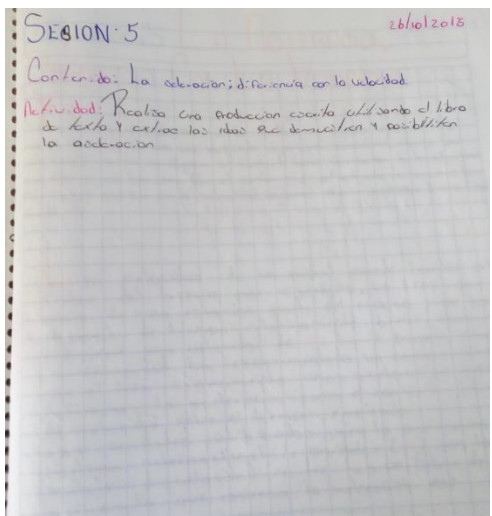 SECION: 5
26/10/2018
Contenido: La aceleracion; diferencia con la velocidad.
Actividad: Realiza una produccion escrita utilisando el libro
de texto y extrae las ideas que demuestren y posibiliten
la aceleracion